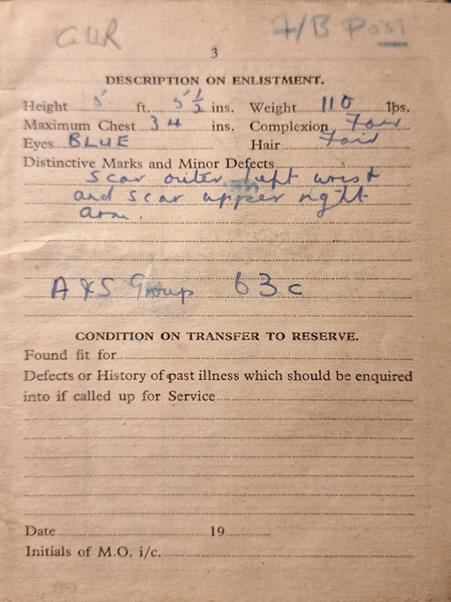 GUR F/B Post
3
DESCRIPTION ON ENLISTMENT.
Height 5' ft. 5½ ins. Weight 110 lbs.
Maximum Chest 34 ins. Complexion Fair
Eyes BLUE Hair Fair
Distinctive Marks and Minor Defects
scar outer left wrist
and scar upper right
arm.
A & S Group 63c
CONDITION ON TRANSFER TO RESERVE.
Found fit for
Defects or History of past illness which should be enquired
into if called up for Service
Date 19
Initials of M.O. i/c.